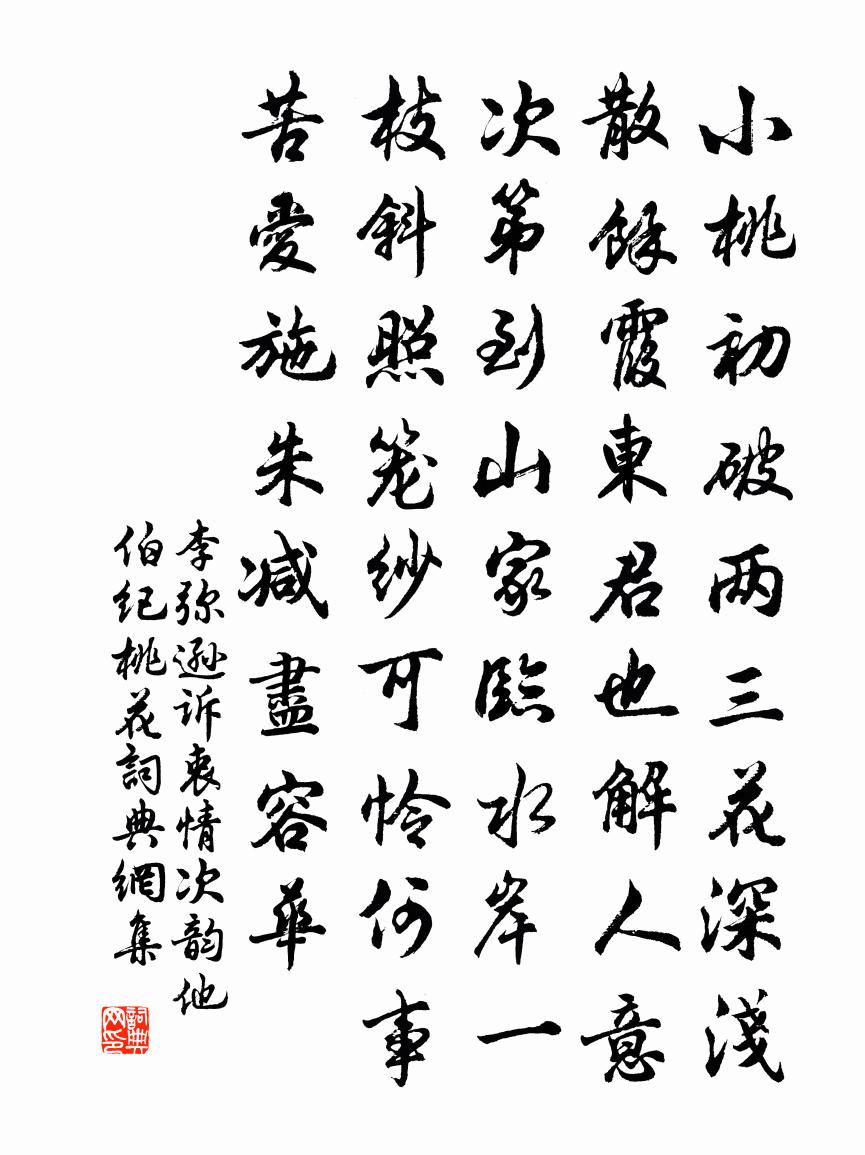 小桃初破两三花深淺
散餘霞東君也解人意
次第到山家臨水岸一
枝斜照笼纱可怜何事
苦愛施朱减盡容華
李弥逊诉衷情次韵他
伯纪桃花詞典網集
詞典网印